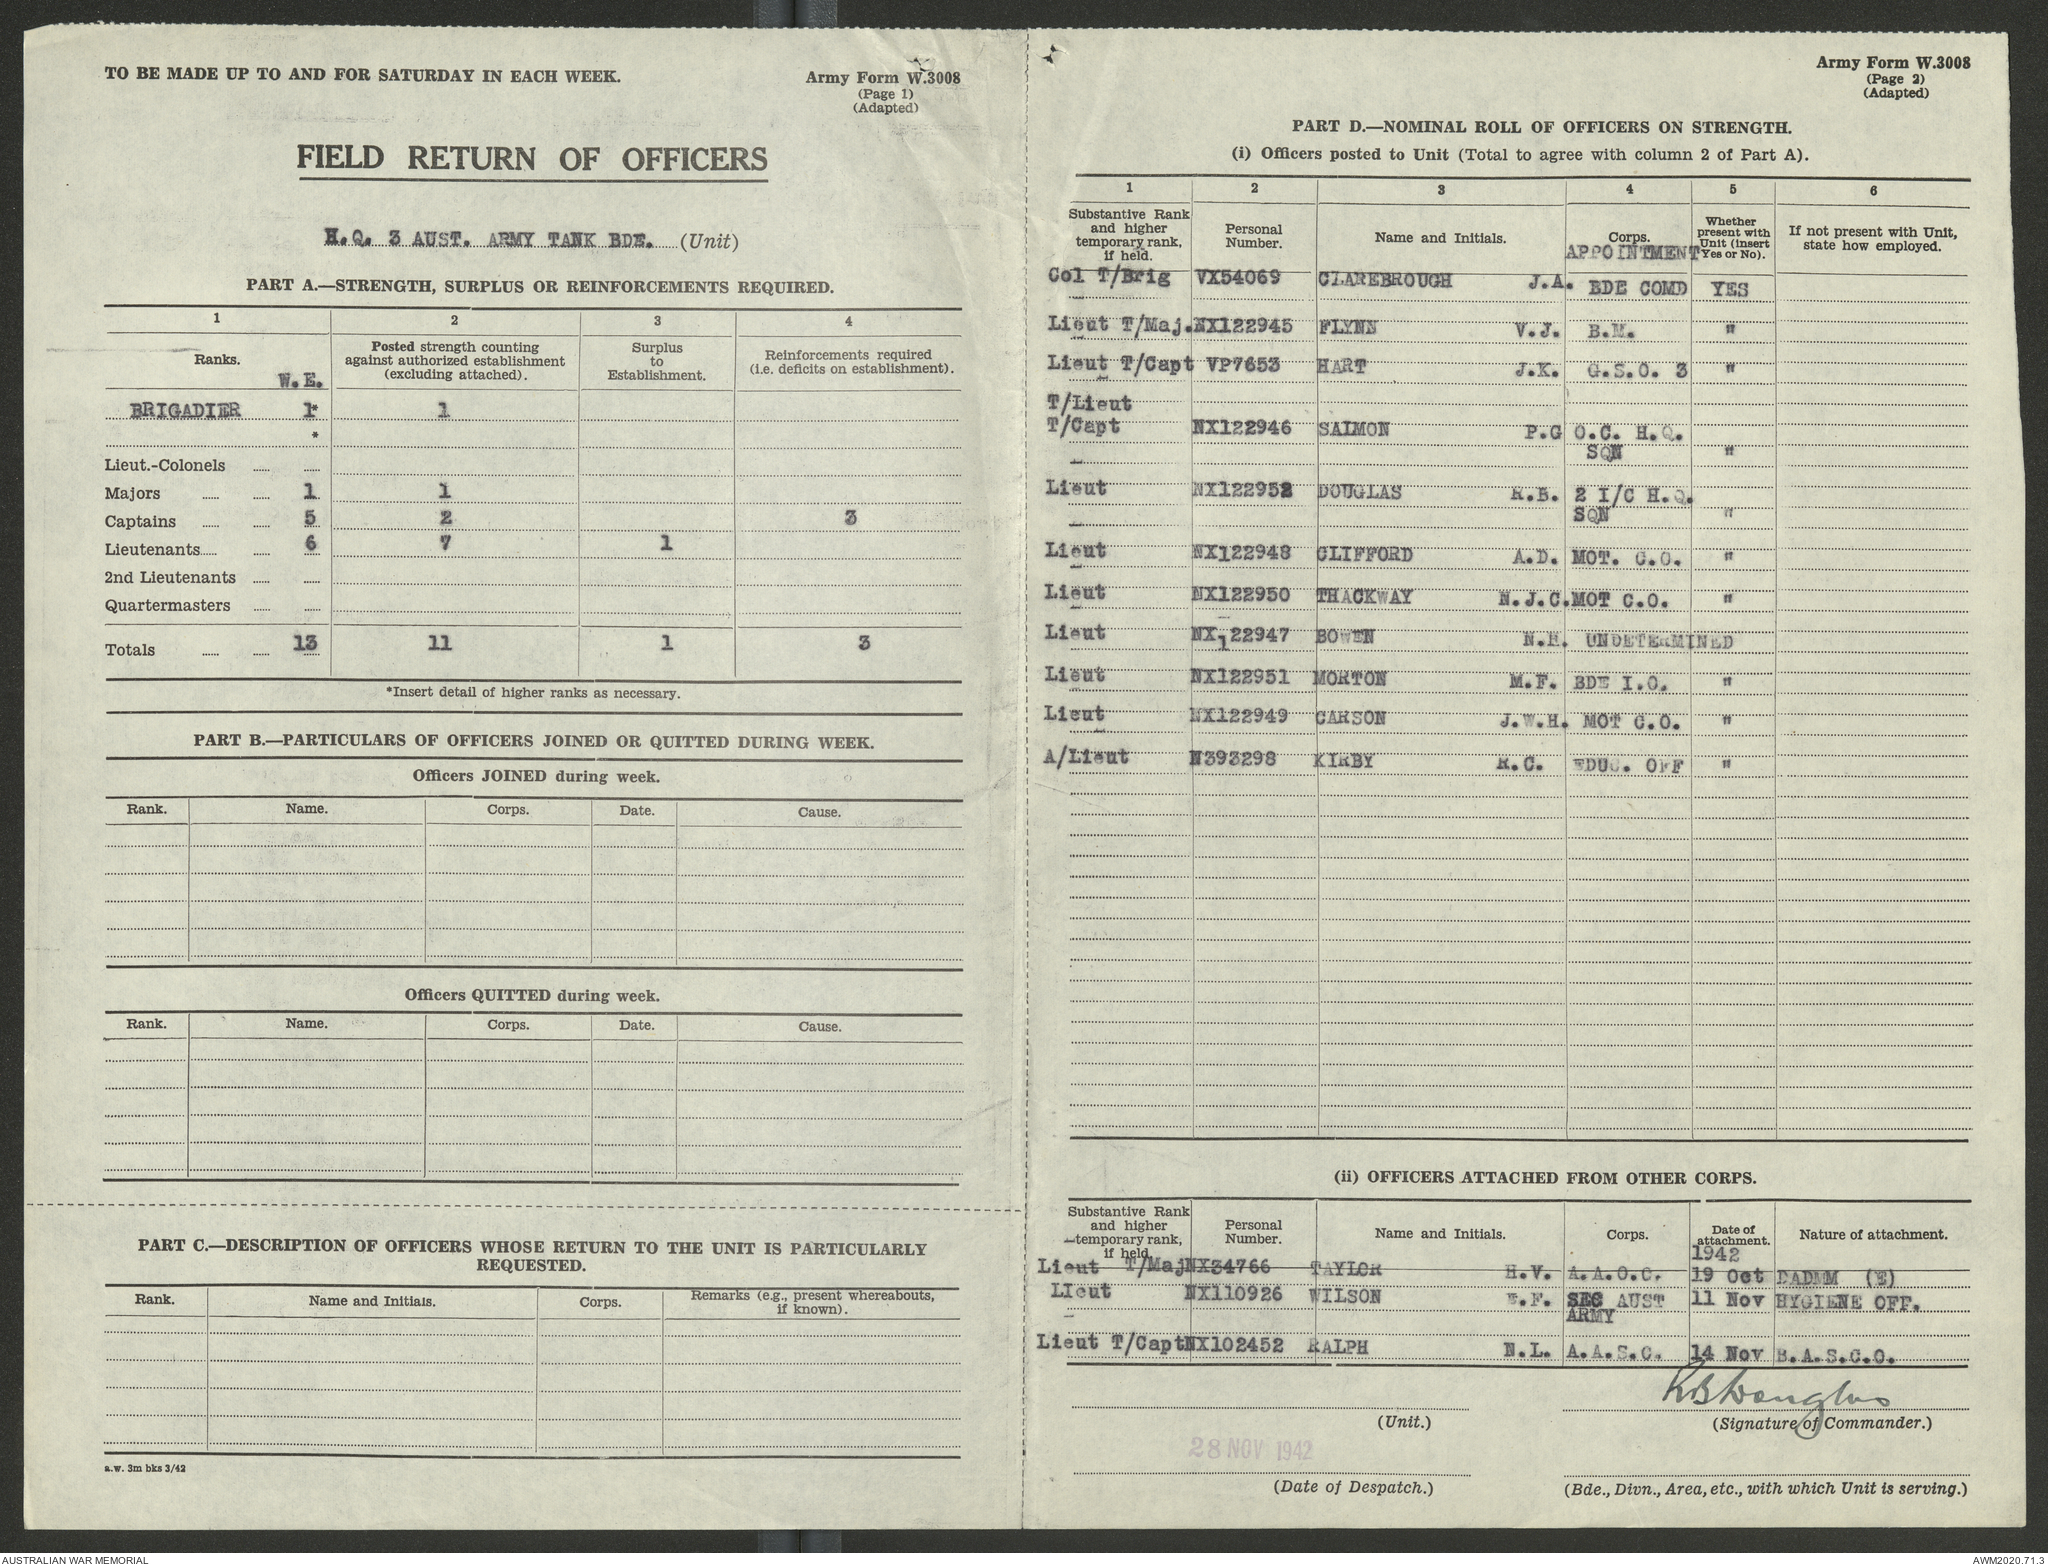 TO BE MADE UP TO AND FOR SATURDAY IN EACH WEEK.
Army Form W.3008
(Page 1)
(Adapted)
FIELD RETURN OF OFFICERS
H.Q. 3 AUST. ARMY TANK BDE. (Unit)
PART A.—STRENGTH, SURPLUS OR REINFORCEMENTS REQUIRED.
1 2 3 4
Ranks. W.E. Posted strength counting against authorized establishment (excluding attached). Surplus to Establishment. Reinforcements required (i.e. deficits on establishment).
BRIGADIER 1* 1
*
Lieut.-Colonels
Majors 1 1
Captains 5 2 3
Lieutenants 6 7 1
2nd Lieutenants
Quartermasters
Totals 13 11 1 3
*Insert detail of higher ranks as necessary.
PART B.—PARTICULARS OF OFFICERS JOINED OR QUITTED DURING WEEK.
Officers JOINED during week.
Rank. Name. Corps. Date. Cause.
Officers QUITTED during week.
Rank. Name. Corps. Date. Cause.
PART C.—DESCRIPTION OF OFFICERS WHOSE RETURN TO THE UNIT IS PARTICULARLY
REQUESTED.
Rank. Name and Initials. Corps. Remarks (e.g., present whereabouts, if known).
a.w. 3m bks 3/42
Army Form W.3008
(Page 2)
(Adapted)
PART D.—NOMINAL ROLL OF OFFICERS ON STRENGTH.
(i) Officers posted to Unit (Total to agree with column 2 of Part A).
1 2 3 4 5 6
Substantive Rank and higher temporary rank, if held. Personal Number. Name and Initials. Corps. APPOINTMENT Whether present with Unit (insert Yes or No). If not present with Unit, state how employed.
Col T/Brig VX54069 CLAREBROUGH J.A. BDE COMD YES
Lieut T/Maj. NX122945 FLYNN V.J. B.M. "
Lieut T/Capt VP7653 HART J.K. G.S.O. 3 "
T/Lieut
T/Capt NX122946 SALMON P.G O.C. H.Q.
SQN "
Lieut NX122952 DOUGLAS R.B. 2 I/C H.Q.
SQN "
Lieut NX122948 CLIFFORD A.D. MOT. C.O. "
Lieut NX122950 THACKWAY N.J.C. MOT C.O. "
Lieut NX122947 BOWEN N.H. UNDETERMINED
Lieut NX122951 MORTON M.F. BDE I.O. "
Lieut NX122949 CARSON J.W.H. MOT C.O. "
A/Lieut N393298 KIRBY R.C. EDUC. OFF "
(ii) OFFICERS ATTACHED FROM OTHER CORPS.
Substantive Rank and higher temporary rank, if held. Personal Number. Name and Initials. Corps. Date of attachment. Nature of attachment.
1942
Lieut T/Maj NX34766 TAYLOR H.V. A.A.O.C. 19 Oct DADMM (E)
LIeut NX110926 WILSON E.F. SEC AUST 11 Nov HYGIENE OFF.
ARMY
Lieut T/Capt NX102452 RALPH N.L. A.A.S.C. 14 Nov B.A.S.C.O.
RBDouglas
(Unit.) (Signature of Commander.)
28 NOV 1942
(Date of Despatch.) (Bde., Divn., Area, etc., with which Unit is serving.)
AUSTRALIAN WAR MEMORIAL AWM2020.71.3